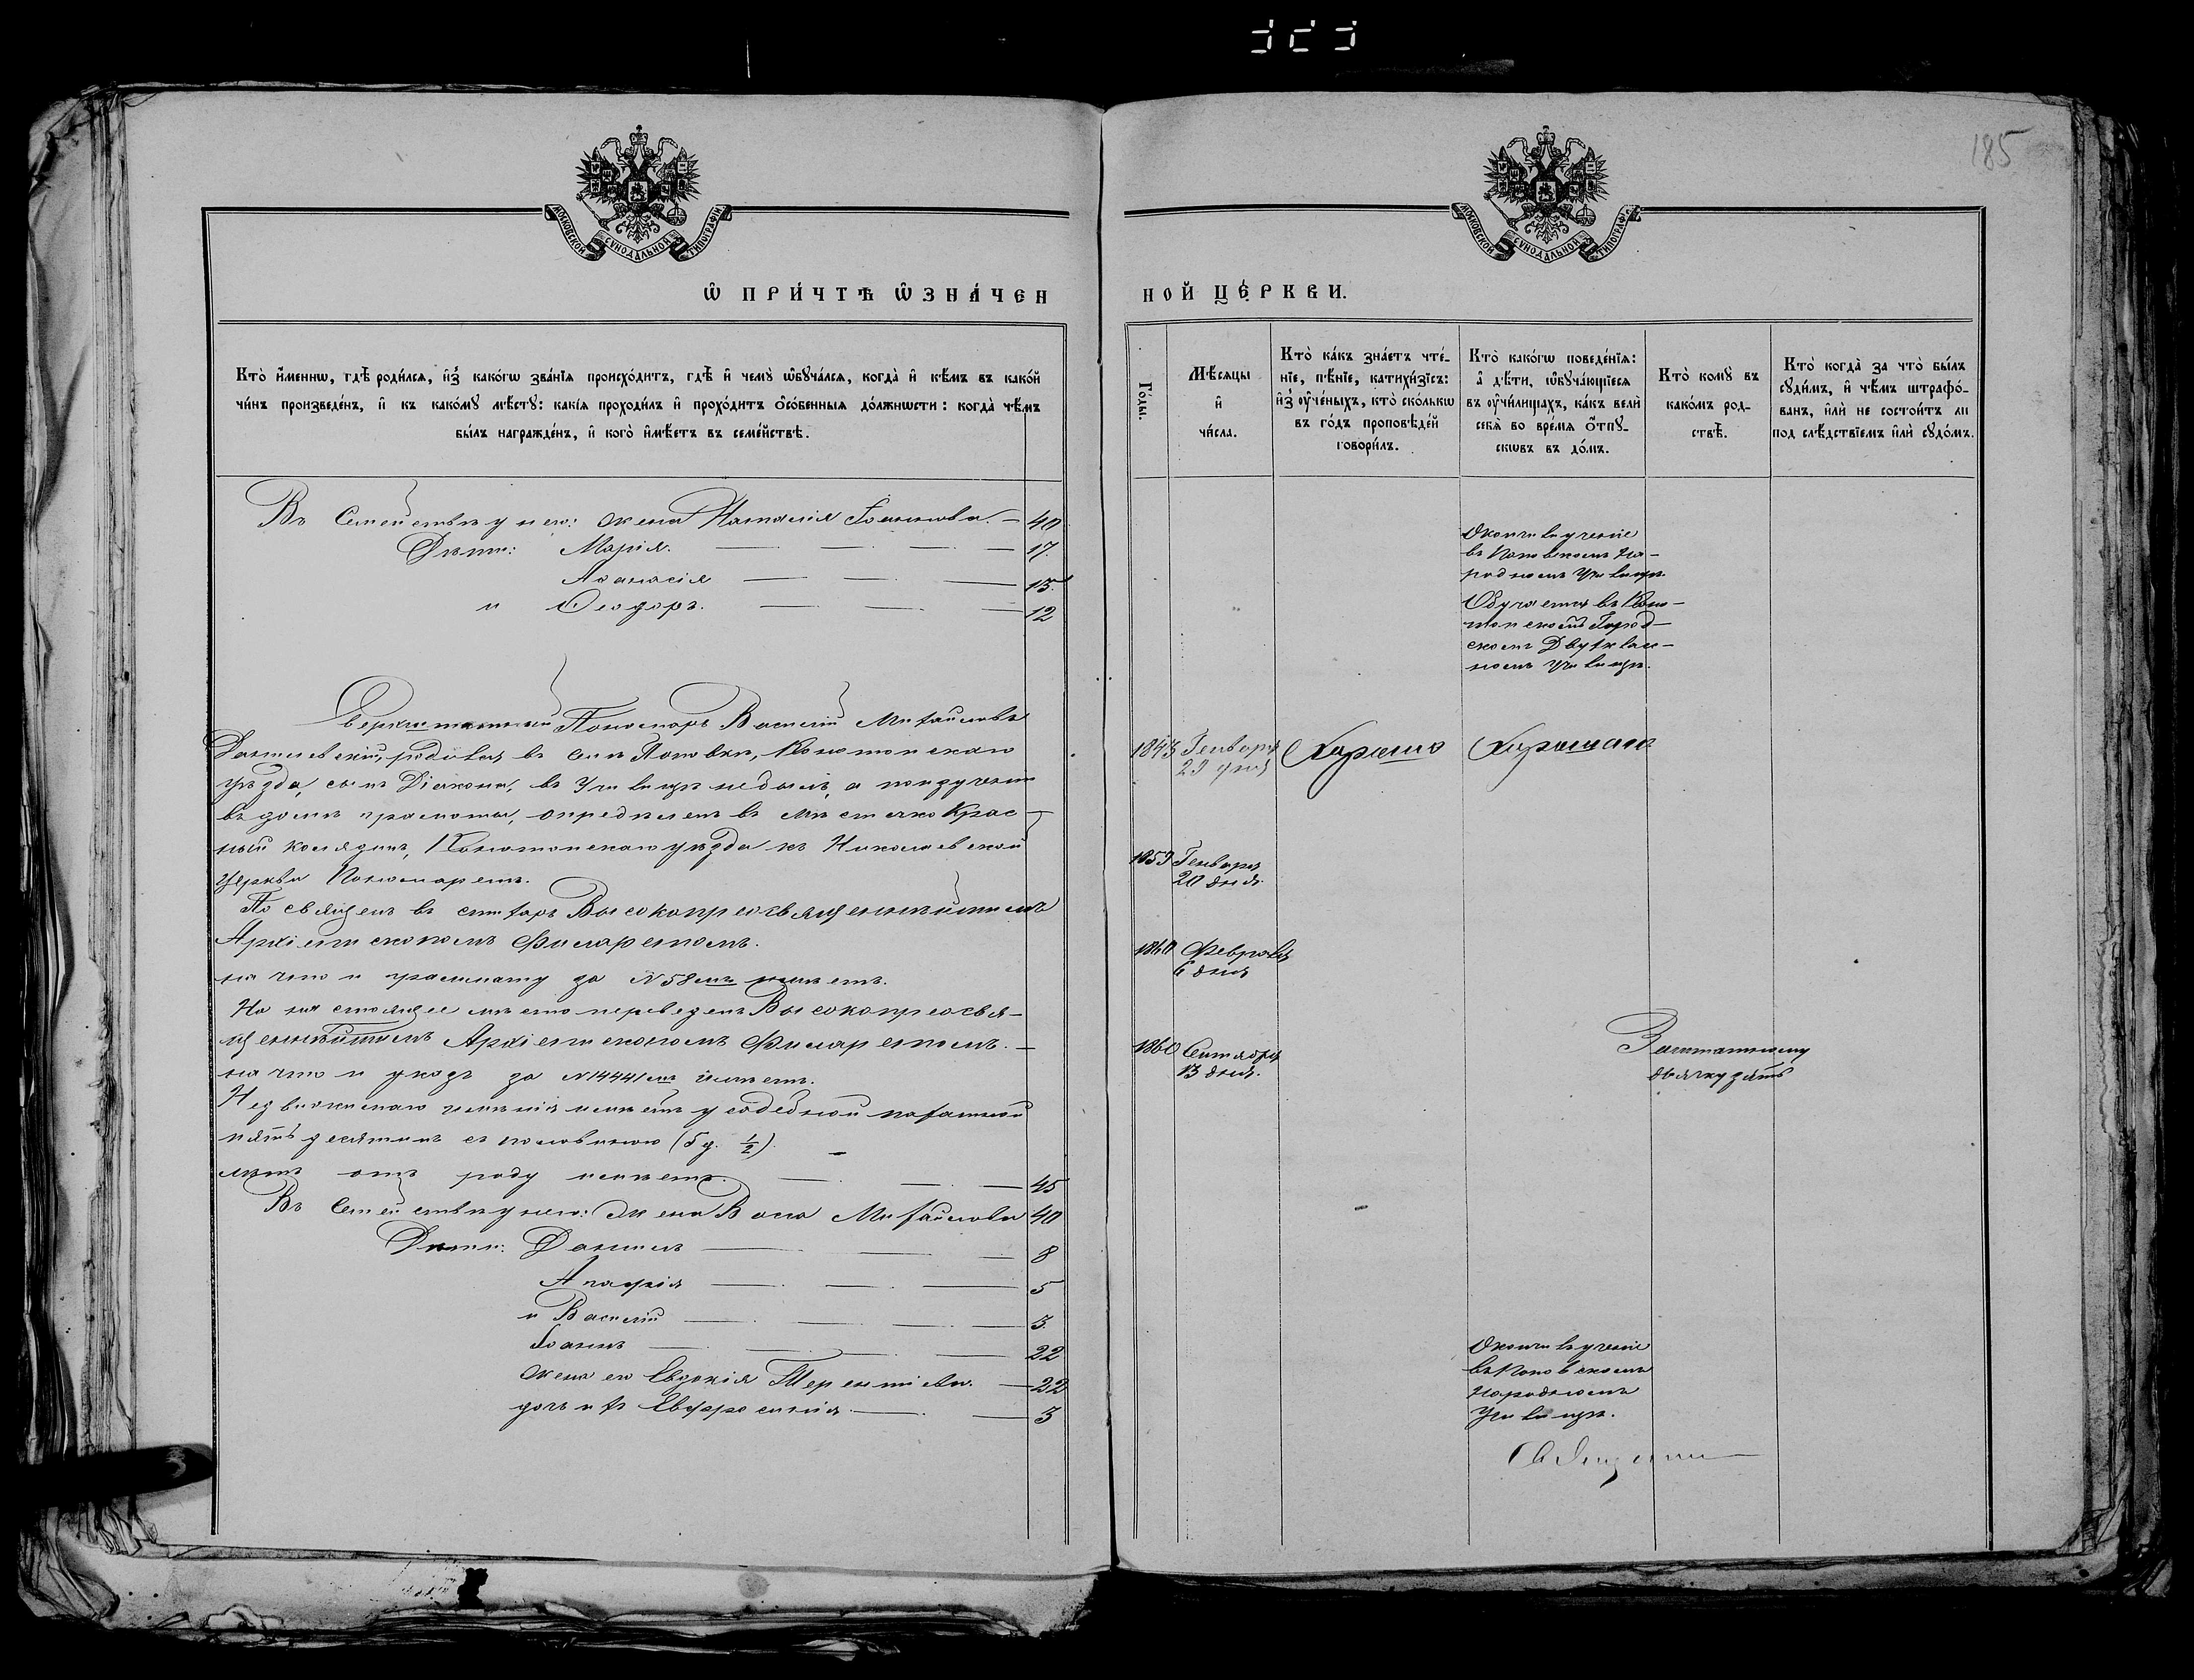 185
МОСКОВСКОЙ СѴНОДАЛЬНОЙ ТИПОГРАФІИ.
МОСКОВСКОЙ СѴНОДАЛЬНОЙ ТИПОГРАФІИ.
Ѡ ПРИ́ЧТѢ Ѡ҆ЗНА́ЧЕН
НОЙ ЦЕ́РКВИ.
Кто̀ и҆́меннѡ, гдѣ̀ роди́лсѧ, и҆з̾ како́гѡ зва́нїѧ происхо́дитъ, гдѣ̀ и҆ чемꙋ̀ ѡ҆бꙋча́лсѧ, когда̀ и҆ кѣ́мъ въ како́й
чи́нъ произведе́нъ, и҆ къ како́мꙋ мѣ́стꙋ: какі̑ѧ проходи́лъ и҆ прохо́дитъ ѻ҆со́бенныѧ до́лжнѡсти: когда̀ чѣ́мъ
бы́лъ награжде́нъ, и҆ кого̀ и҆мѣ́етъ въ семе́йствѣ.
Го́ды.
Мѣ́сѧцы
и҆
чи́сла.
Кто̀ ка́къ зна́етъ чте́-
нїе, пѣ́нїе, катихи́зїсъ:
и҆з̾ ᲂу҆че́ныхъ, кто̀ ско́лькѡ
въ го́дъ проповѣ́дей
говори́лъ.
Кто̀ како́гѡ поведе́нїѧ:
а҆ дѣ́ти, ѡ҆бꙋча́ющїесѧ
въ ᲂу҆чи́лищахъ, ка́къ велѝ
себѧ̀ во вре́мѧ ѿпꙋ-
скѡвъ въ до́мъ.
Кто̀ комꙋ̀ въ
како́мъ род-
ствѣ̀.
Кто̀ когда̀ за что̀ бы́лъ
сꙋди́мъ, и҆ чѣ́мъ штрафо́-
ванъ, и҆лѝ не состои́тъ ли
под слѣ́дствїемъ и҆лѝ сꙋдо́мъ.
Въ Семействѣ у него: жена Наталія Іоаннова. — 40
Дѣти: Марія. — 17.
Аѳанасія — 15.
и Ѳеодоръ. — 12
Окончилъ ученіе
въ Поповскомъ На-
родномъ Училищѣ.
Обучается въ Коно-
топскомъ Город-
скомъ Двухклас-
номъ Училищѣ.
Сверхштатный Пономарь Василій Михайловъ
Данилевскій, родился въ селѣ Поповки, Конотопскаго
уѣзда, сынъ Діакона, въ Училищѣ не былъ, а
въ домѣ грамоты, опредѣленъ въ мѣстечко Крас-
ный колядинъ, Конотопскаго уѣзда къ Николаевской
церкви Пономаремъ.
Посвященъ въ стихарь Высокопреосвященнѣйшимъ
Архіепископомъ Филаретомъ.
на что и граммату за №58мъ имѣетъ.
На настоящее мѣсто переведенъ Высокопреосвя-
щеннѣйшимъ Архіепископомъ Филаретомъ. —
на что и указъ за №14441мъ имѣетъ.
Недвижимаго имѣнія имѣетъ усадебной пахатной
пять десятинъ съ половиною (5 д. 1/2).
лѣтъ отъ роду имѣетъ. — 45
Въ Семействѣ у него: Жена Васса Михайлова 40
Дѣти: Даніилъ — 8
Агафія — 5
и Василій — 3.
Іоаннъ — 22
Жена его Евдокія Терентіева. — 22
дочь ихъ Евфросинія — 3
1843 Генваря
29 дня
Хорошо
Хорошаго
1853 Генваря
20 дня.
1860 Февраля
6 дня
1860 Сентября
13 дня.
Заштатному
дьячку зять
Окончилъ ученіе
въ Поповскомъ
Народномъ
Училищѣ.